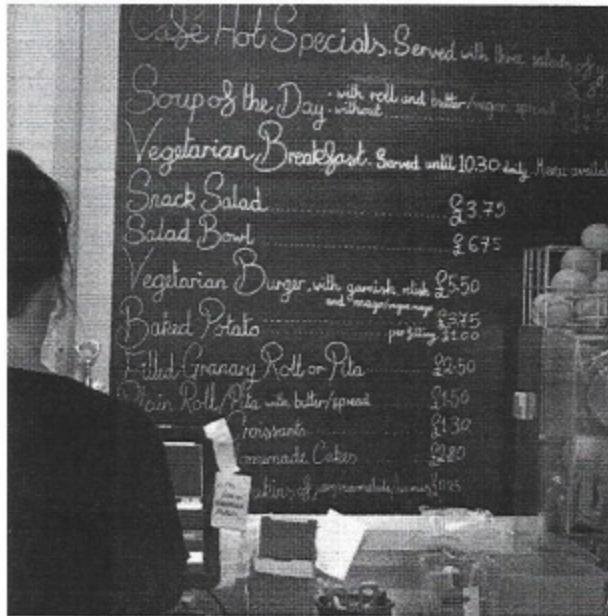 Café Hot Specials. Served with three salads of
Soup of the Day - with roll and butter/vegan spread
- without
Vegetarian Breakfast. Served until 10.30 daily. Menu
Snack Salad £3.75
Salad Bowl £6.75
Vegetarian Burger, with garnish, relish £5.50
and mayo/vegan mayo
Baked Potato £3.75
per filling £1.00
Filled Granary Roll or Pita £2.50
Plain Roll/Pita with butter/spread £1.50
Croissants £1.30
Cakes £2.80
of jam/marmalade/ £0.25